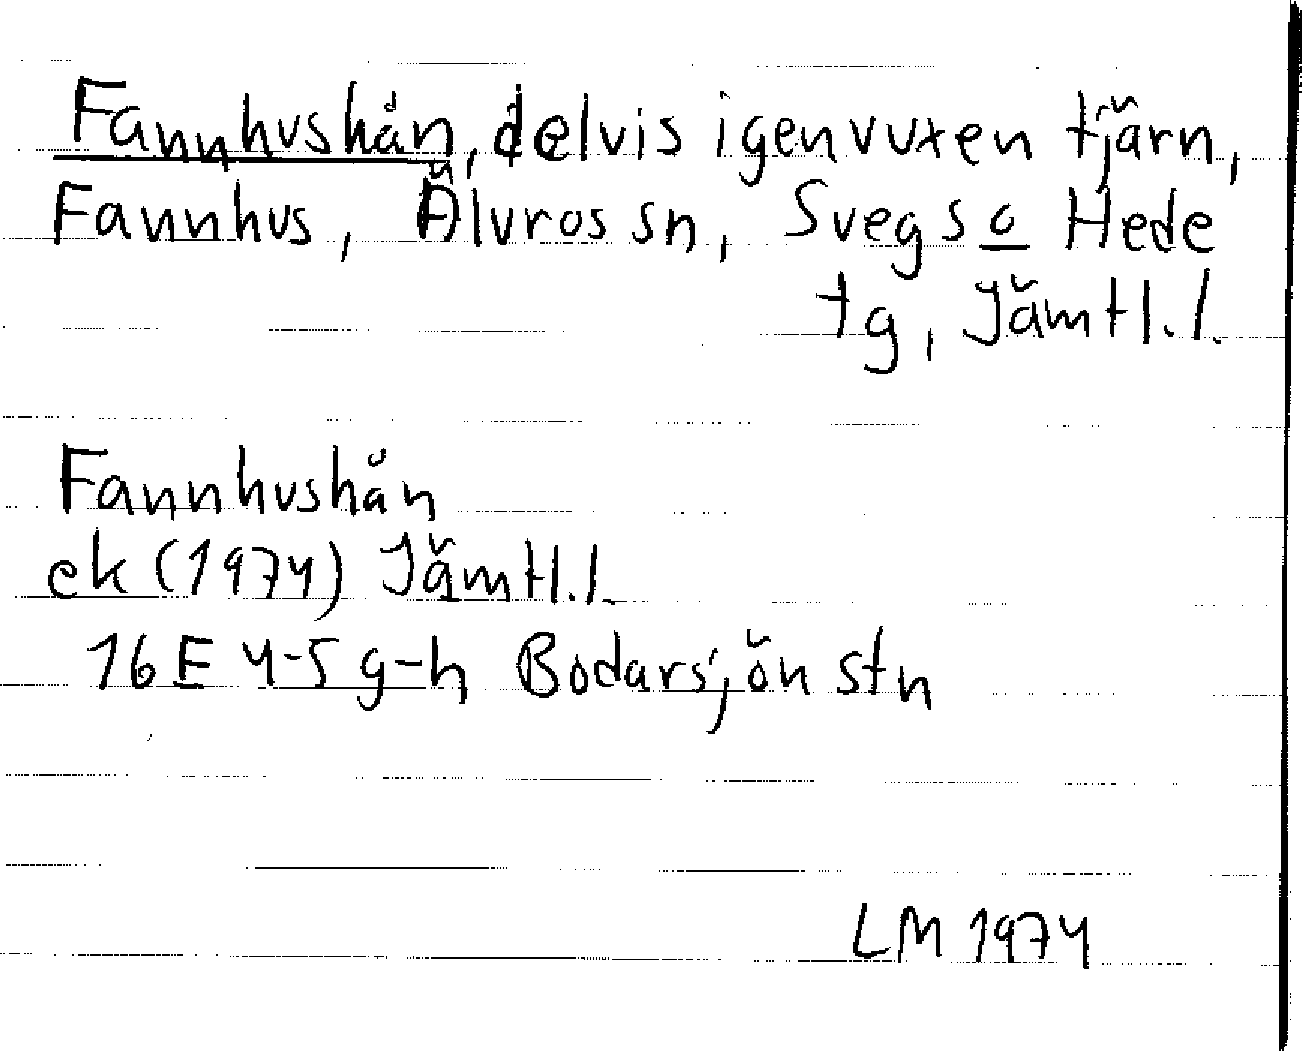 Fannhushån, delvis igenvuxen tjärn,
Fannhus, Älvros sn, Svegs o Hede
tg, Jämtl.l.
Fannhushån
ek (1974) Jämtl.l.
16 E 4-5 g-h Bodarsjön stn
LM 1974